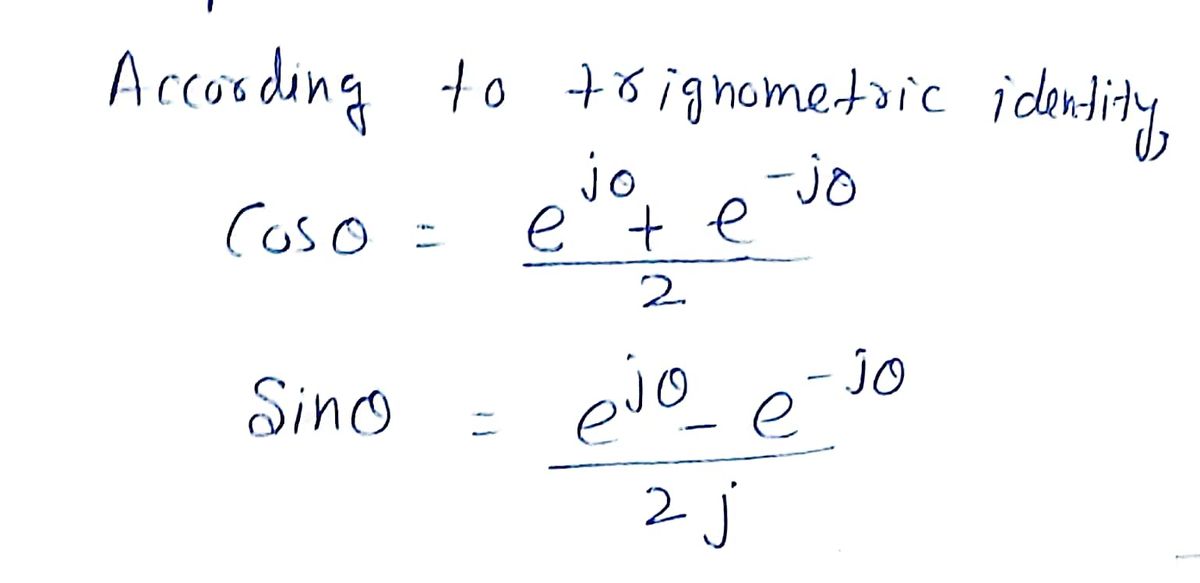 According to trignometric identity,
Cosθ = (e^{jθ} + e^{-jθ})/2
Sinθ = (e^{jθ} - e^{-jθ})/2j